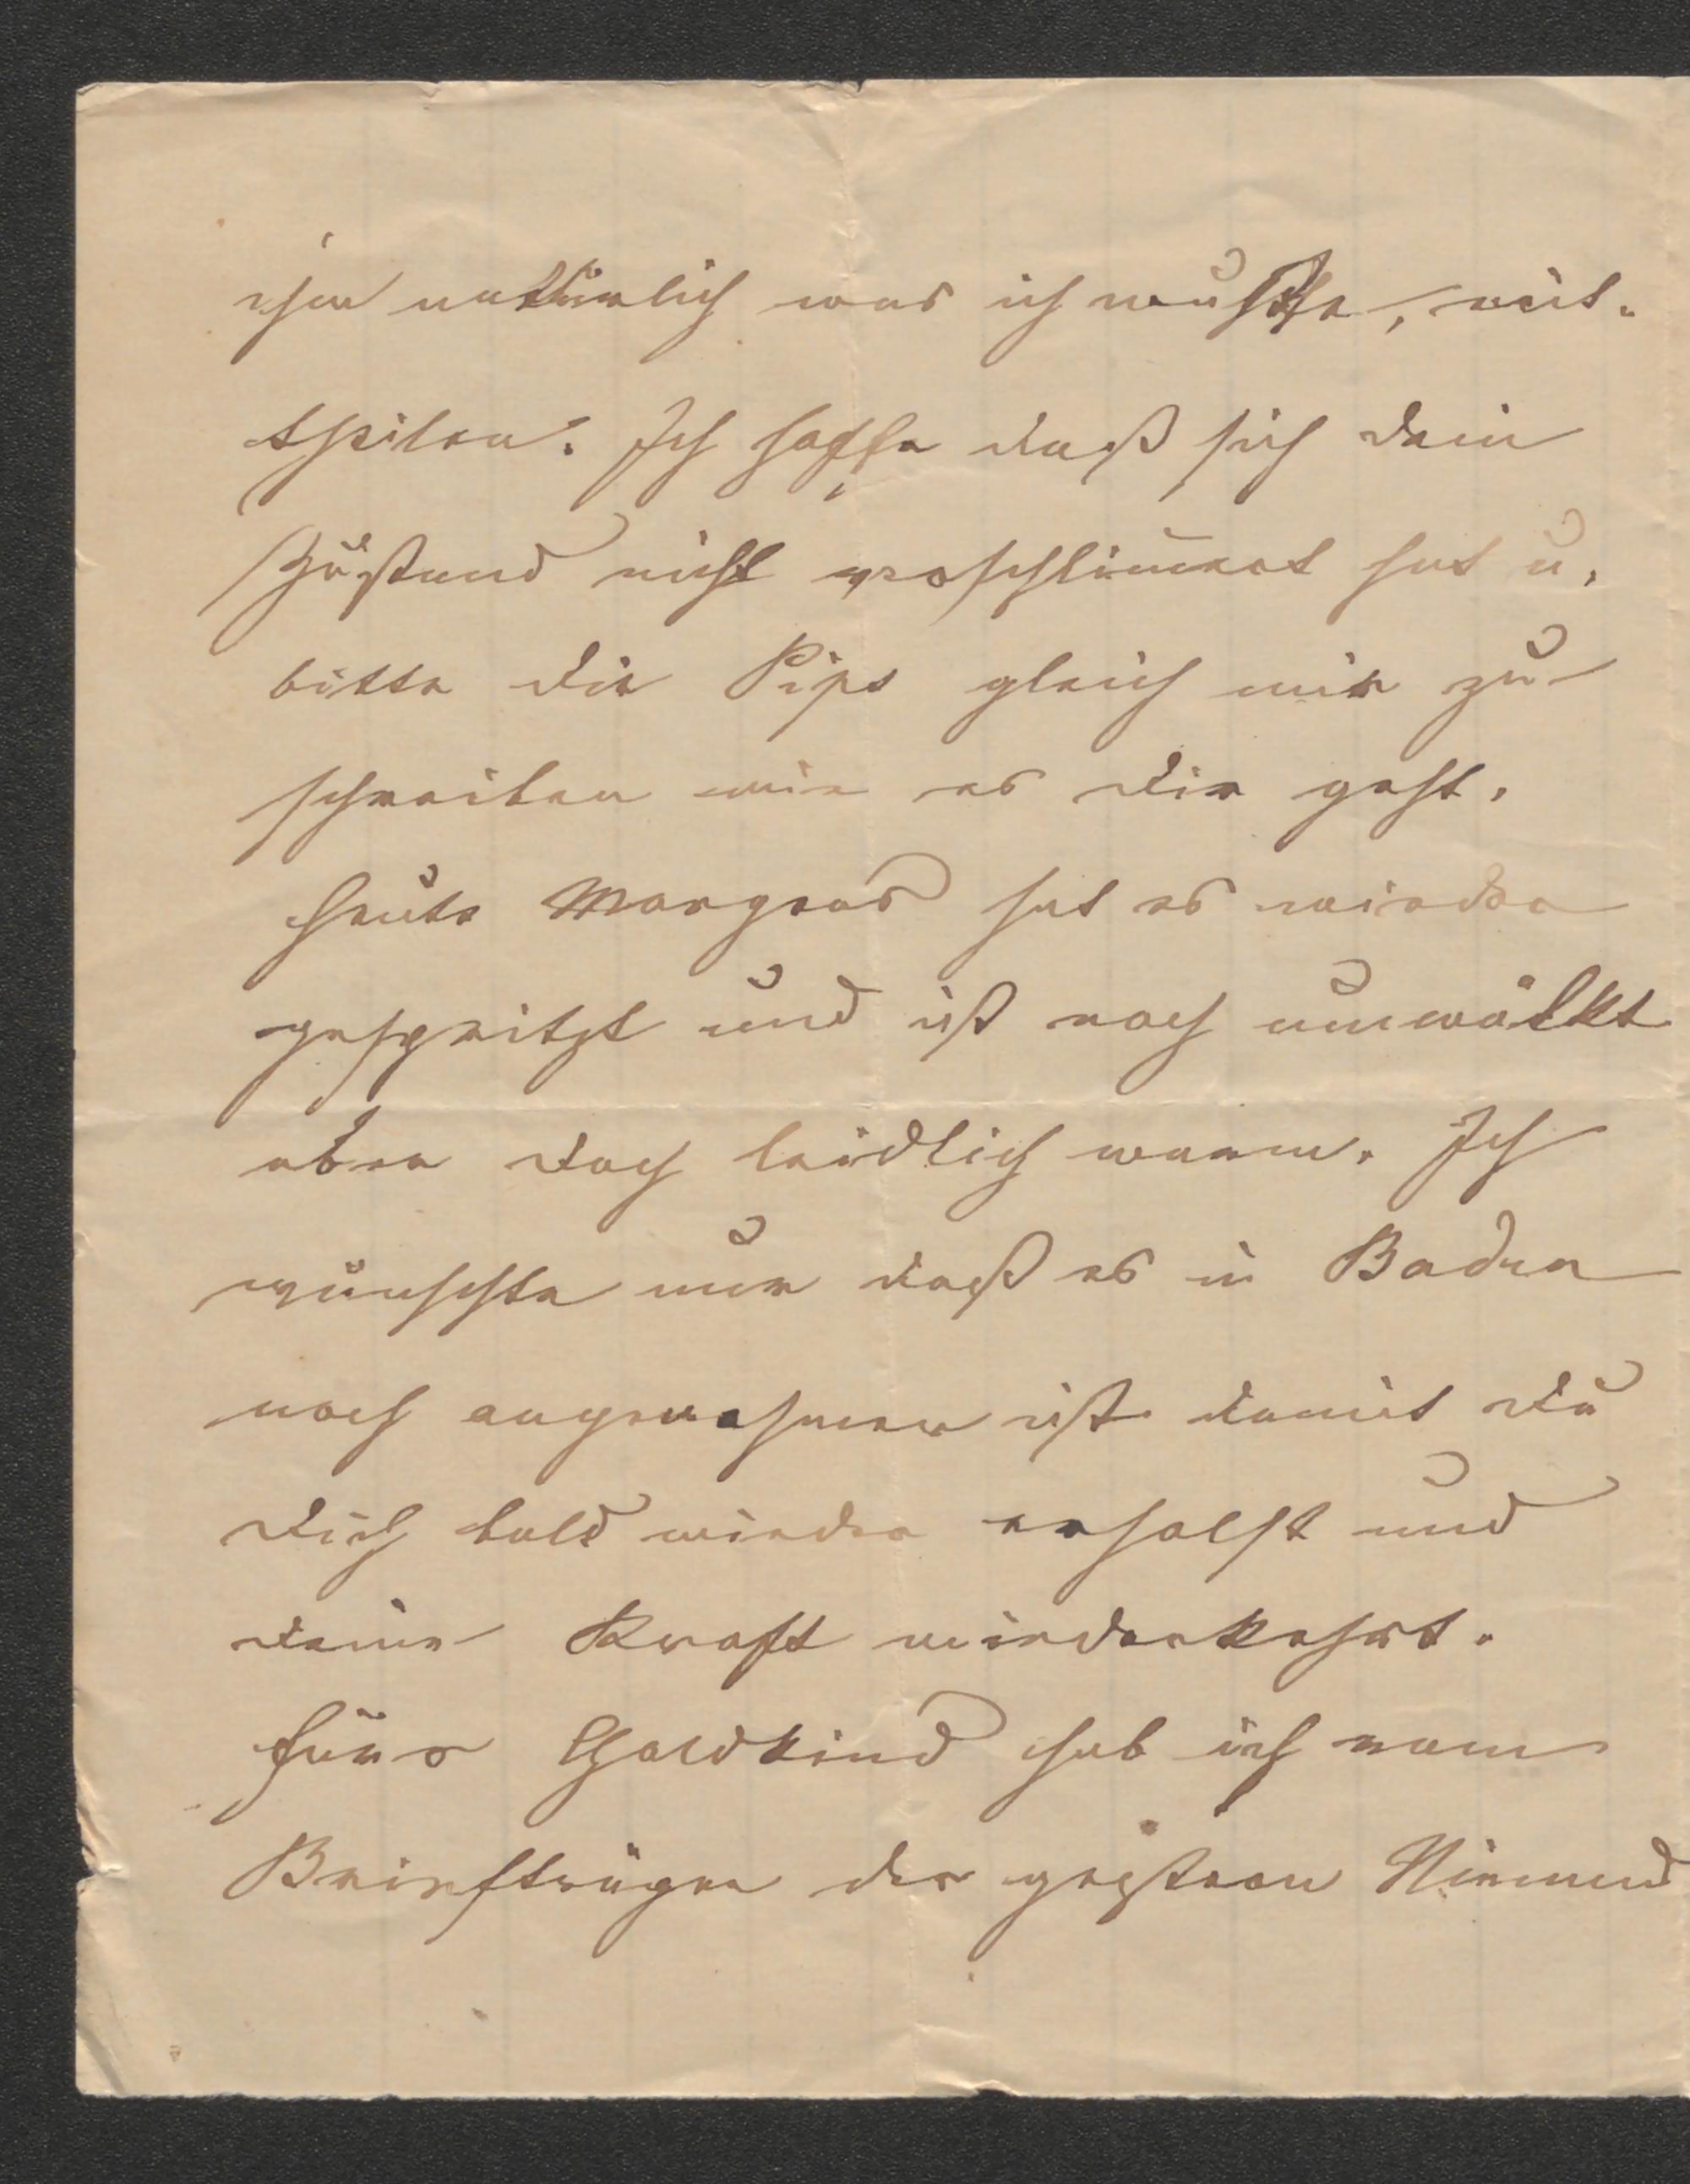 ihm natürlich was ich wußte, mit-
theilen. Ich hoffe daß sich dein
Zustand nicht verschlimmert hat u.
bitte die Pips gleich mir zu
schreiben wie es dir geht.
Heute Morgens hat es wieder
gespritzt und ist noch umwölkt
aber doch leidlich warm. Ich
wünschte nur daß es in Baden
noch angenehmer ist damit du
dich bald wieder erholst und
deine Kraft wiederkehrt.
Fürs Goldkind hab ich vom
Briefträger der gestern Niemand